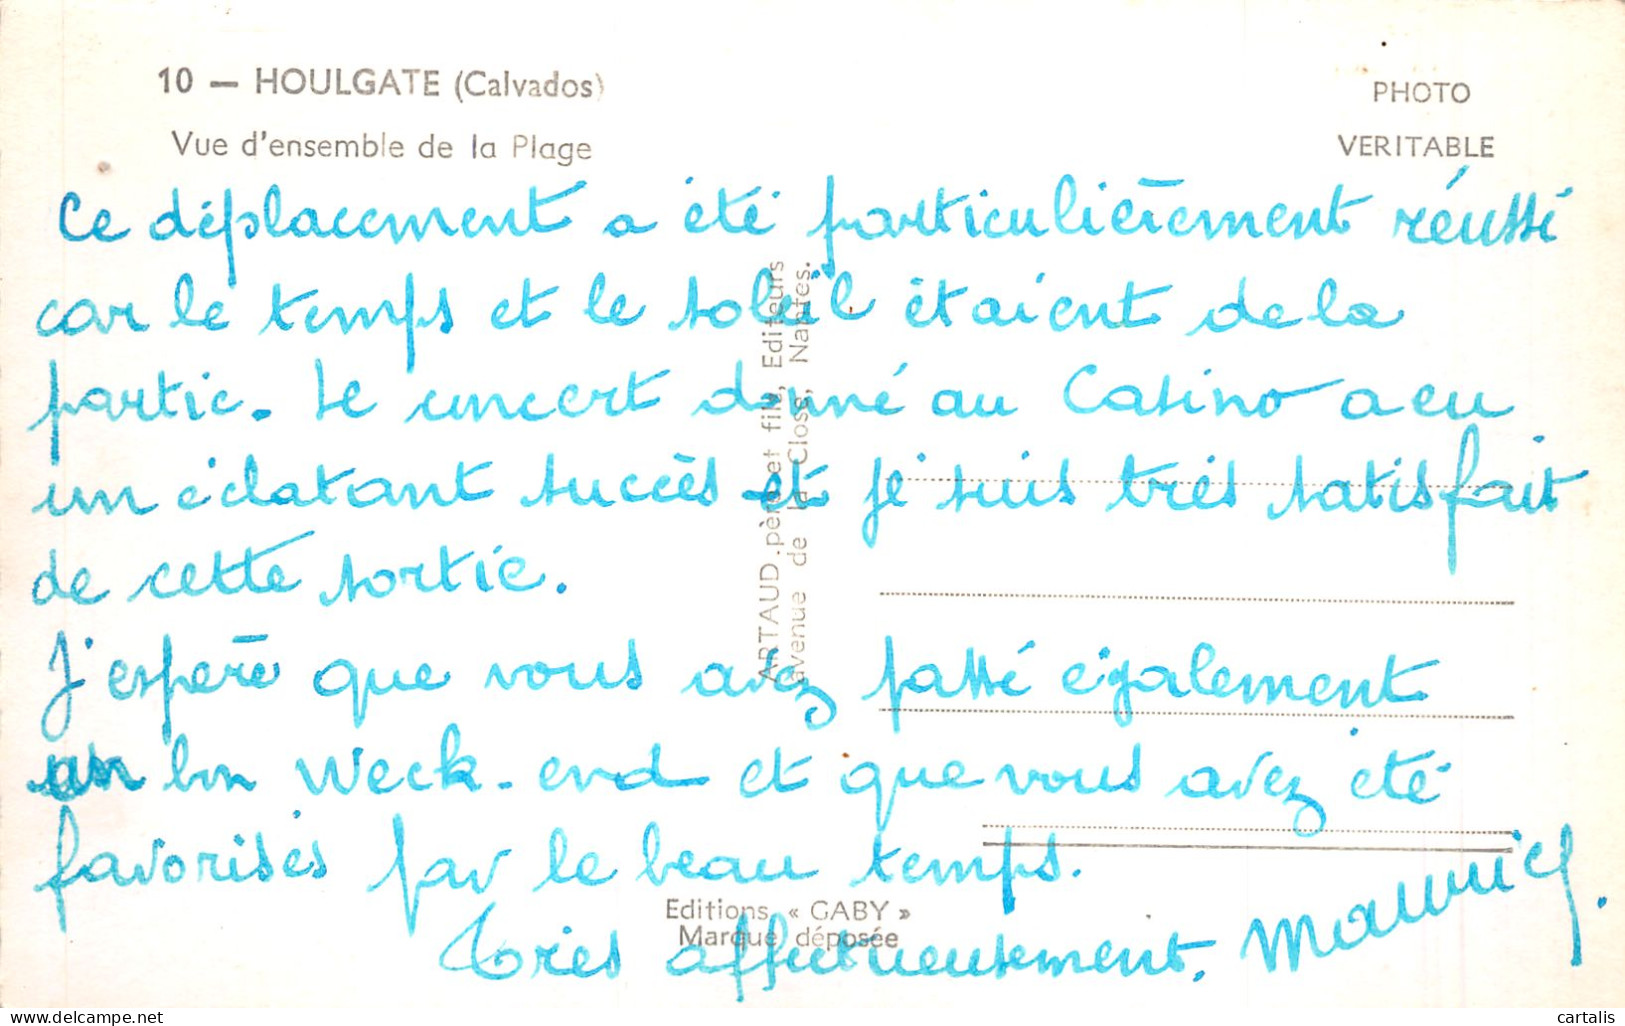 10 — HOULGATE (Calvados)
Vue d'ensemble de la Plage
PHOTO
VERITABLE
Ce déplacement a été particulièrement réussi
car le temps et le soleil étaient de la
partie. Le concert donné au Casino a eu
un éclatant succès et je suis très satisfait
de cette sortie.
J'espère que vous avez passé également
un bon week-end et que vous avez été
favorisés par le beau temps.
Très affectueusement. Maurice.
ARTAUD père et fils, Editeurs
avenue de la Close, Nantes.
Editions « GABY »
Marque déposée
delcampe.net
cartalis